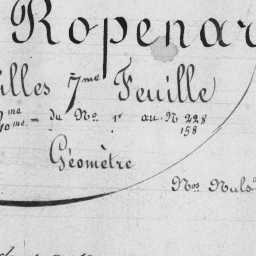 Ropenar
illes 7me Feuille
2me
10me = du No. 1er au N 228
158
Géomètre
Nos Nuls